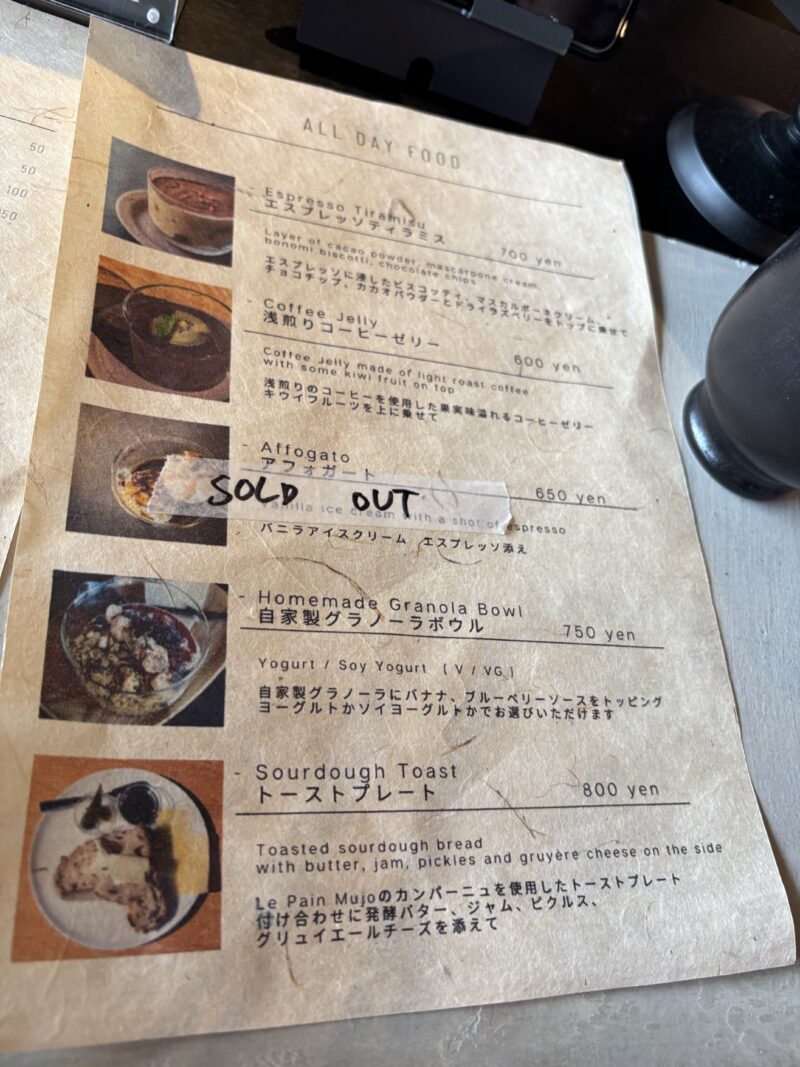 50
50
100
50
ALL DAY FOOD
- Espresso Tiramisu
エスプレッソティラミス
700 yen
Layer of cacao powder, mascarpone cream,
bonomi biscotti, chocolate chips
エスプレッソに浸したビスコッティ、マスカルポーネクリーム、
チョコチップ、カカオパウダーとドライラズベリーをトップに乗せて
- Coffee Jelly
浅煎りコーヒーゼリー
600 yen
Coffee Jelly made of light roast coffee
with some kiwi fruit on top
浅煎りのコーヒーを使用した果実味溢れるコーヒーゼリー
キウイフルーツを上に乗せて
- Affogato
アフォガート
SOLD OUT
650 yen
Vanilla ice cream with a shot of espresso
バニラアイスクリーム エスプレッソ添え
- Homemade Granola Bowl
自家製グラノーラボウル
750 yen
Yogurt / Soy Yogurt ( V / VG )
自家製グラノーラにバナナ、ブルーベリーソースをトッピング
ヨーグルトかソイヨーグルトかでお選びいただけます
- Sourdough Toast
トーストプレート
800 yen
Toasted sourdough bread
with butter, jam, pickles and gruyère cheese on the side
Le Pain Mujoのカンパーニュを使用したトーストプレート
付け合わせに発酵バター、ジャム、ピクルス、
グリュイエールチーズを添えて